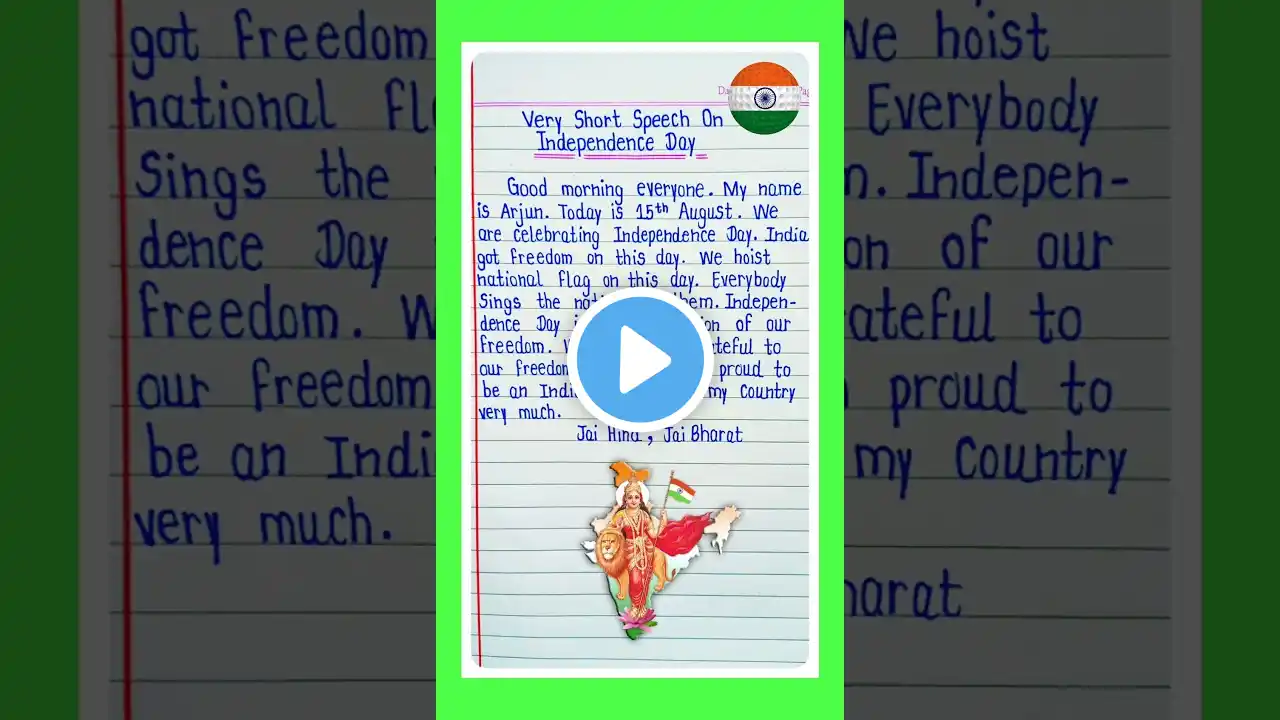 got freedom
national
Sings the
dence Day
freedom.
our freedom
be an
very much.
Very Short Speech On
Independence Day
Good morning everyone. My name
is Arjun. Today is 15th August. We
are celebrating Independence Day. India
got freedom on this day. We hoist
national flag on this day. Everybody
Sings the Indepen-
dence Day of our
freedom. to
our freedom proud to
be an my Country
very much.
Jai Hind, Jai Bharat
We hoist
Everybody
Indepen-
of our
to
proud to
my Country